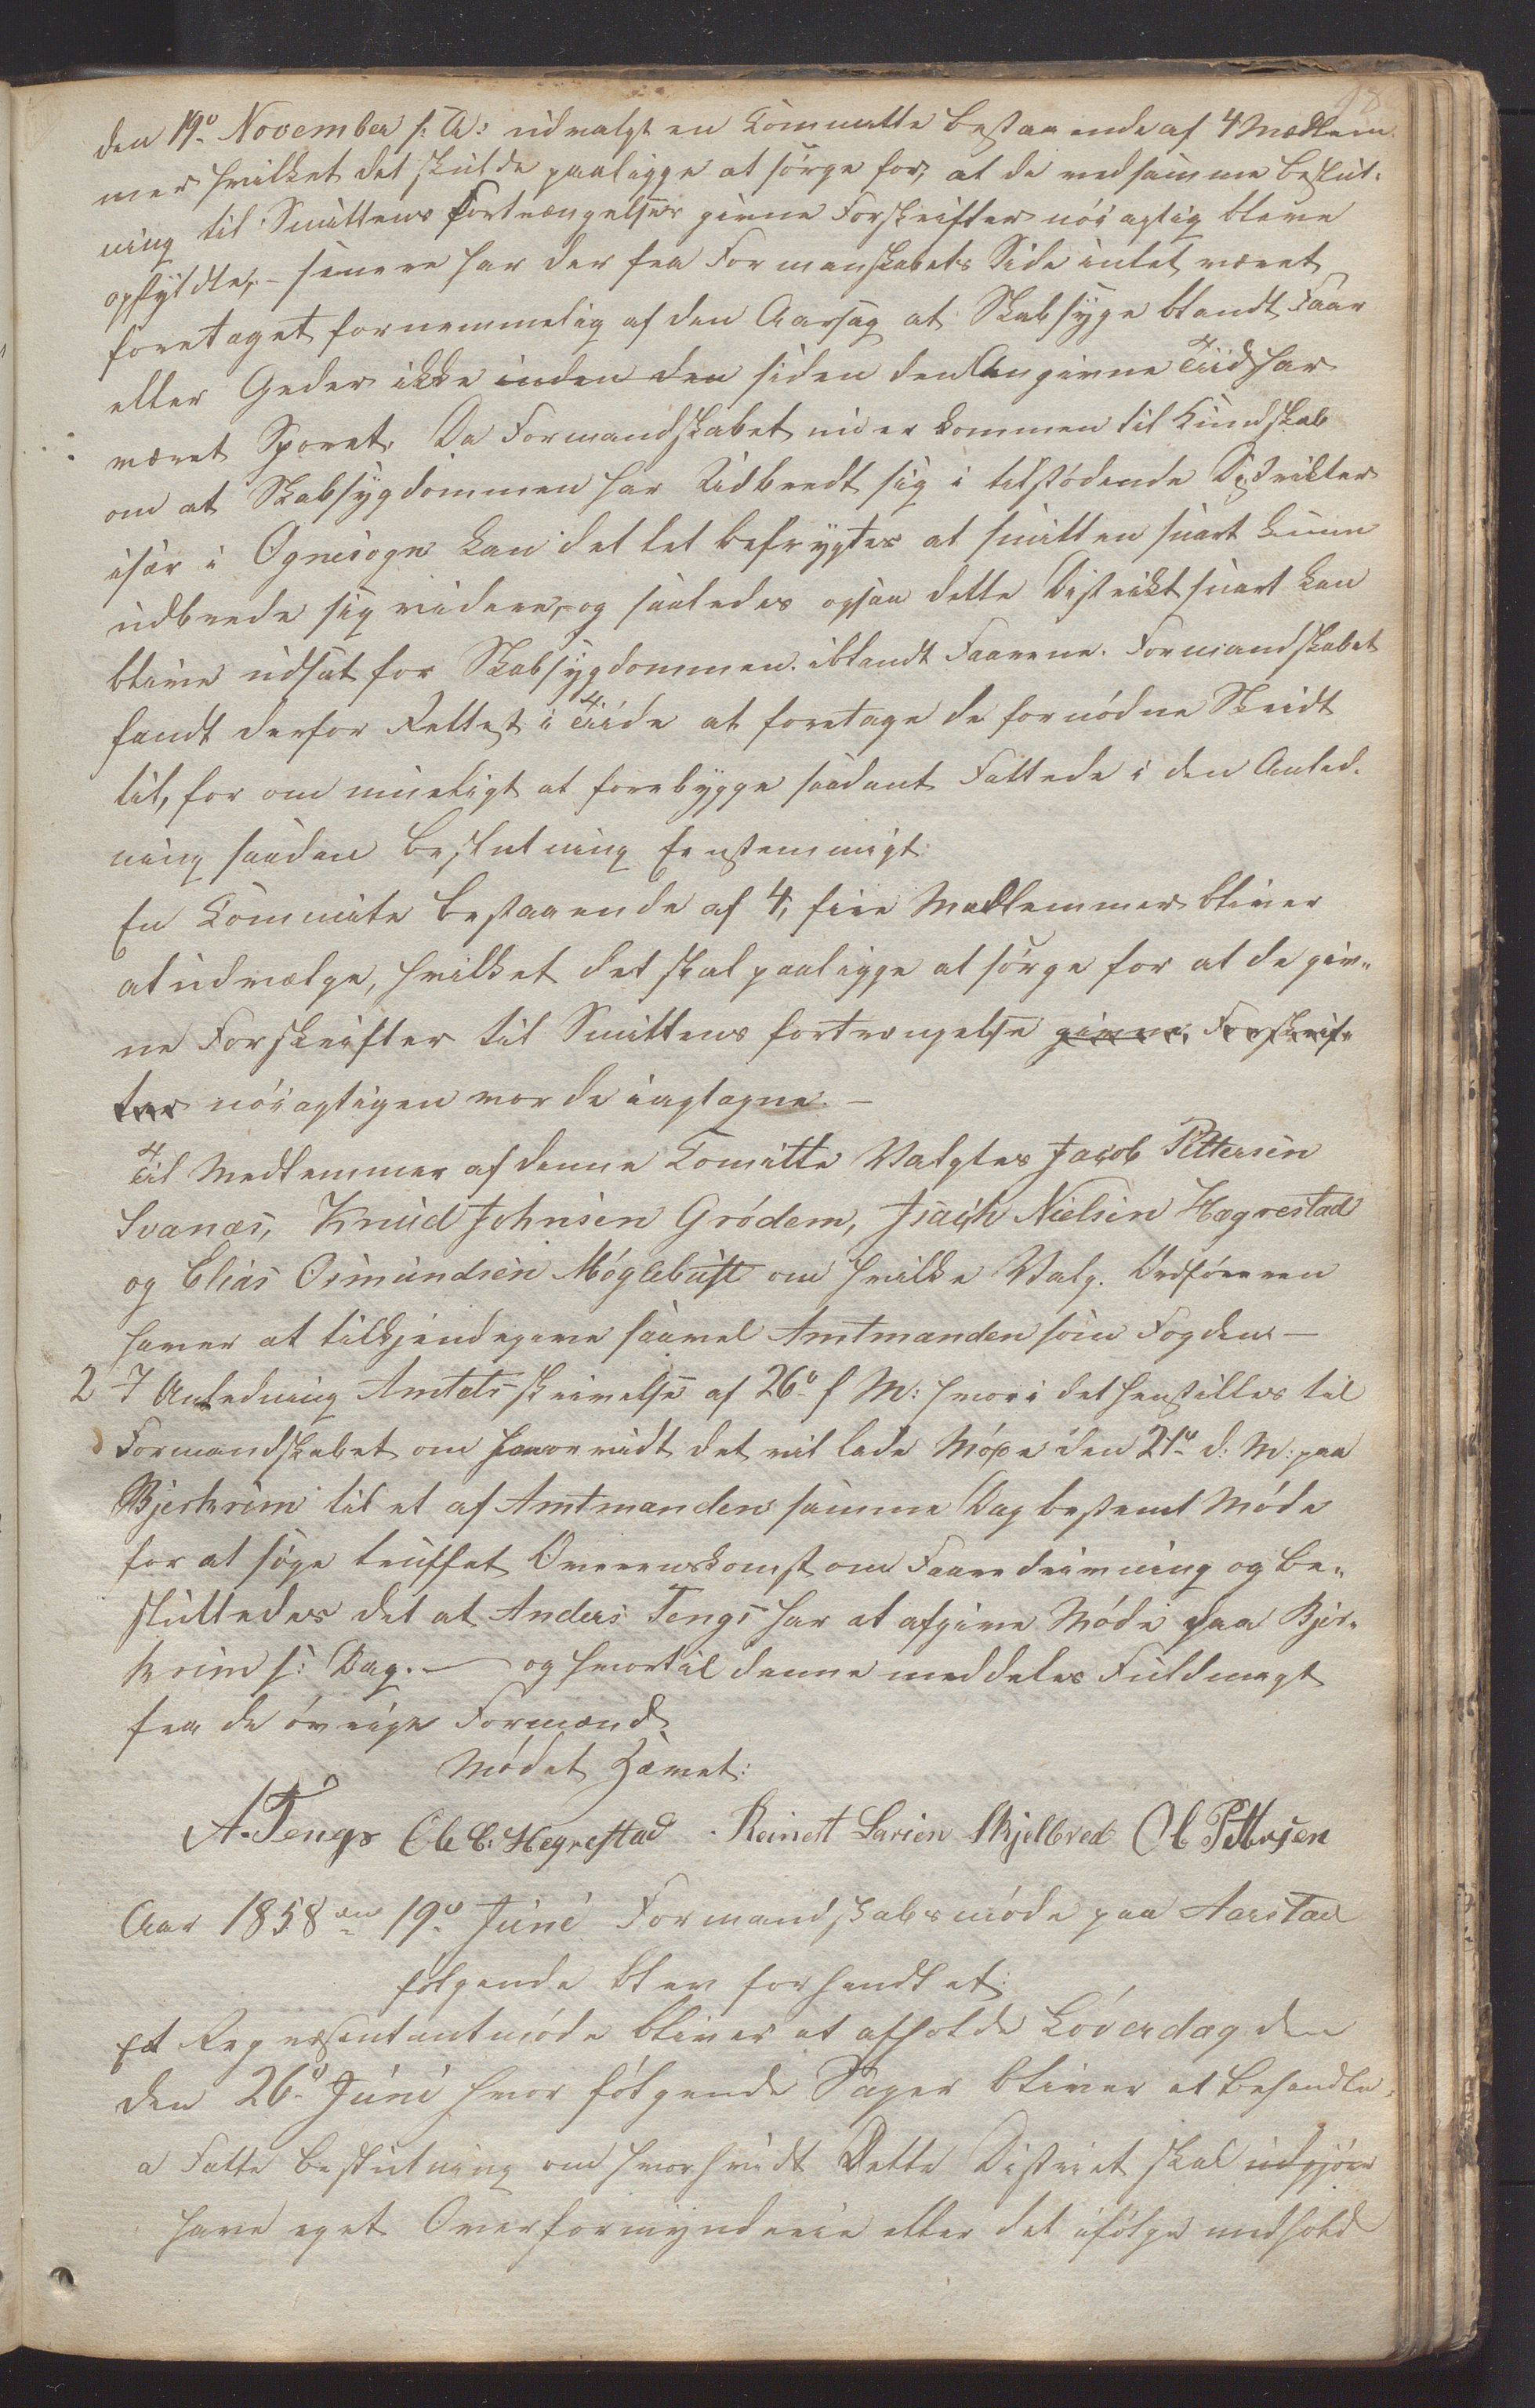 den 19de November s: A: udvalgt en Committe bestaaende af 4 Medlem
mer hvilket det skulde paaligge at sörge for, at de ved samme beslut-
ning til Smittens Fortrængelses givne Forskrifter nöiagtig bleve
opfyldte, – senere har der fra Formanskabets Side intet været
foretaget fornemmelig af den Aarsag at Skabsyge blandt Faar
eller Geder ikke inden den siden den Angivne Tiid har
været Sporet. Da Formandskabet nu er kommen til Kundskab
om at Skabsygdommen har Udbredt sig i tilstödende Districter
især i Ognesogn kan det let befrygtes at smitten snart kunne
udbrede sig videre, og saaledes ogsaa dette Distrikt snart kan
blive udsat for Skabsygdommen iblandt Faarene. Formandskabet
fandt derfor Rettest i Tiide at foretage de fornödne Skridt
til, for om mueligt at forebygge saadant Fattede i den Anled-
ning saadan Beslutning Eenstemmigt:
En Commite bestaaende af 4, fire Medlemmer bliver
at udvælge, hvilket det skal paaligge at sörge for at de giv-
ne Forskrifter til Smittens fortrængelse givne Forskrif-
ter nöiagtigen vorde iagtagne. –
Til Medlemmer af denne Comitte Valgtes Jacob Pettersen
Svanæs, Knud Johnsen Grödem, Isach Nielsen Hægrestad
og Elias Osmundsen Möglebust om hvilke Valg Ordföreren
haver at tilkjendegive saavel Amtmanden som Fogden –
2 I Anledning Amtets skrivelse af 26de f M: hvori det henstilles til
Formandskabet om hvorvidt det vil lade Möde den 21de d: M: paa
Bjerkrim til et af Amtmanden samme Dag bestemt Möde
for at söge truffet Overenskomst om Faaredrivning og be-
sluttedes det at Anders Tengs har at afgive Möde paa Bjer-
krim s: Dag. – og hvortil denne meddeles Fuldmagt
fra de övrige Formænd
Mödet Hævet:
A. Tengs Ole C. Hegrestad Reinert Larsen Skjelbred Ol Pettersen
Aar 1858 den 19de Juni Formandskabsmöde paa Aarstad
fölgende blev forhandlet:
Et Repræsentantmöde bliver at afholde Löverdag den
den 26de Juni hvor fölgende Sager bliver at behandle.
a Fatte Beslutning om hvorhvidt Dette District skal udgjöre
have eget Overformynderie eller det ifölge medhold